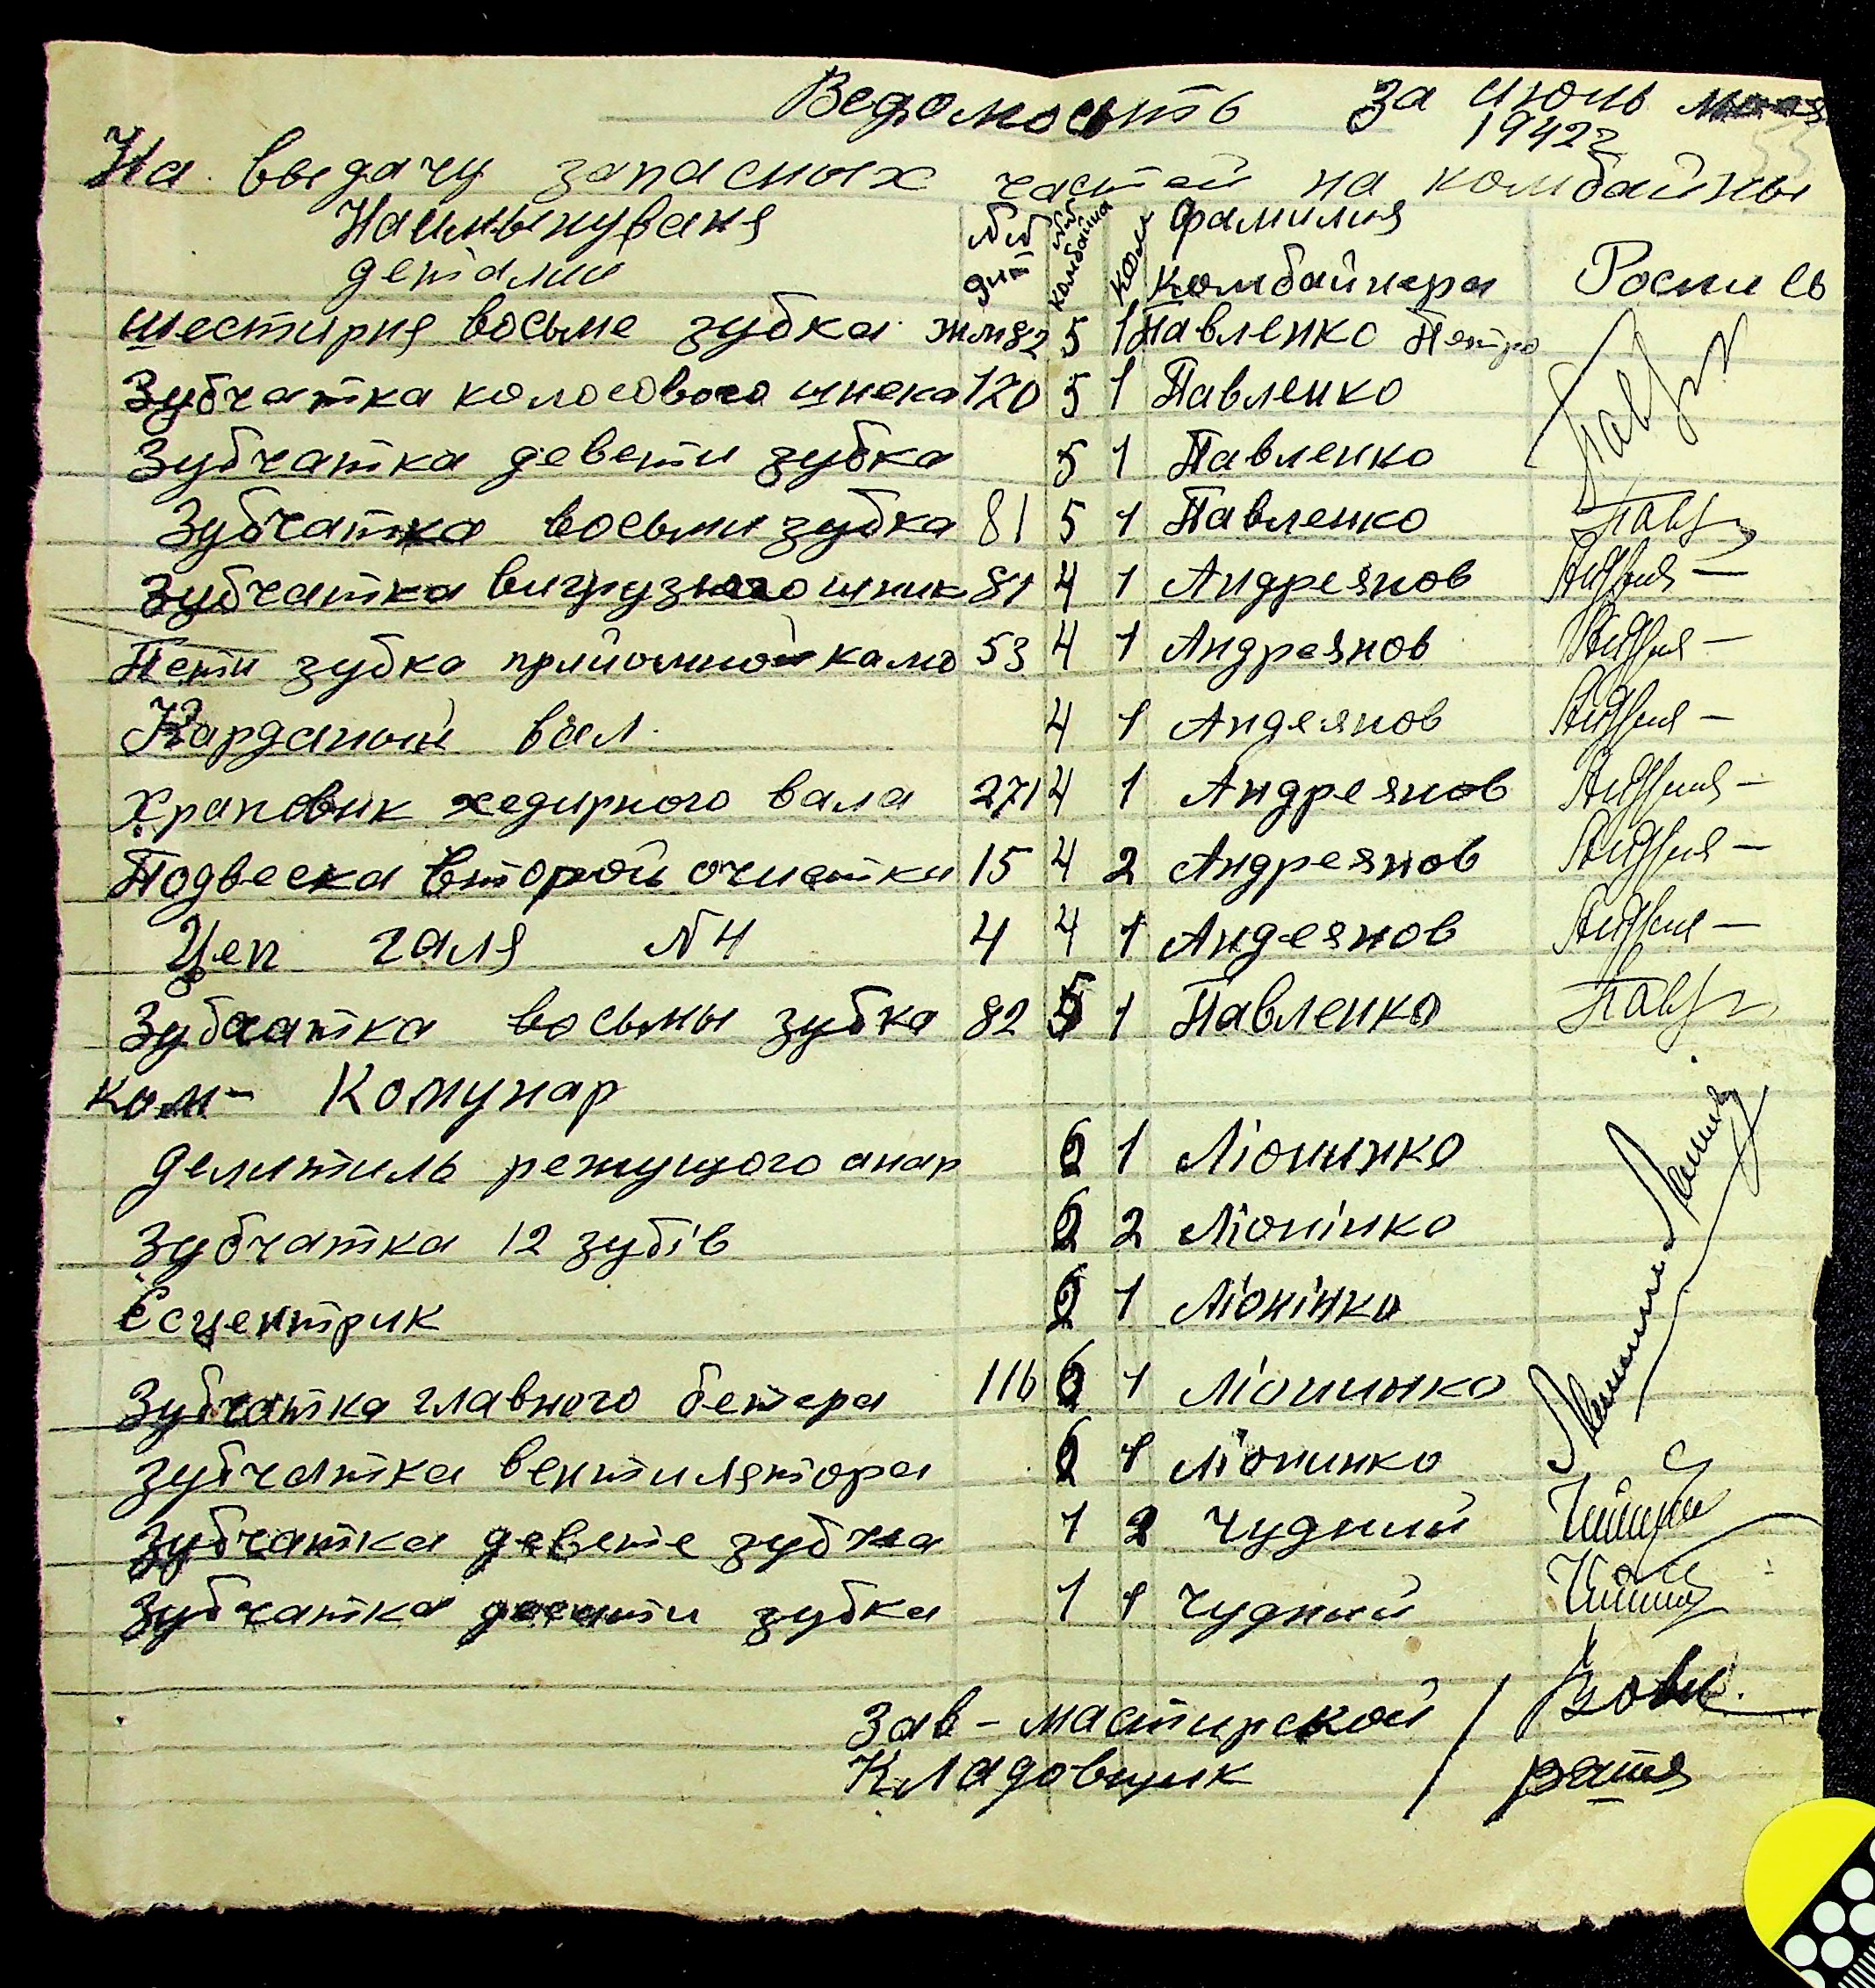 Ведомость за июль
1942г
На выдачу запасных частей на комбайны
Наимынуваня №№ №№ фамилия
деталии дит комбайна кол комбайнера Роспись
шестирня восьме зубка 82 5 1 Павленко Петро
Зубчатка колосового шнека 120 5 1 Павленко
Зубчатка девети зубка 5 1 Павленко
Зубчатка восьми зубка 81 5 1 Павленко
Зубчатка вигрузного шник 81 4 1 Андреянов
Пети зубка прийомной камо 53 4 1 Андреянов
Карданый вал 4 1 Андеянов
Храповик хедирного вала 271 4 1 Андреянов
Подвеска второй очистки 15 4 2 Андреянов
Цеп галя №4 4 4 1 Андеянов
Зубчатка восьмы зубка 82 5 1 Павленко
ком- Комунар
делитиль режущого апар 6 1 Ліонинко
Зубчатка 12 зубів 6 2 Ліонінко
Есцентрик 6 1 Ліонінко
Зубчатка главного бетера 116 6 1 Ліонинко
зубчатка вентилятора 6 1 Ліонинко
Зубчатка девете зубка 1 2 Чудний
Зубчатка зубка 1 1 Чудний
Зав-мастирской /
Кладовщик /